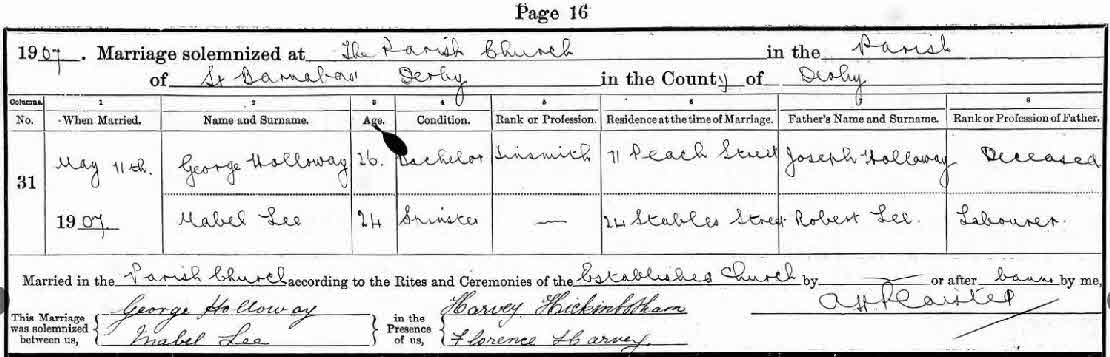 Page 16
1907. Marriage solemnized at The Parish Church in the Parish
of St Barnabas Derby in the County of Derby
Columns. 1 2 3 4 5 6 7 8
No. When Married. Name and Surname. Age. Condition. Rank or Profession. Residence at the time of Marriage. Father's Name and Surname. Rank or Profession of Father.
31 May 11th. George Holloway 26. Bachelor Tinsmith 71 Peach Street Joseph Holloway Deceased
1907. Mabel Lee 24 Spinster — 24 Stables Street Robert Lee. Labourer.
Married in the Parish Church according to the Rites and Ceremonies of the Established Church by — or after banns by me,
This Marriage was solemnized between us, George Holloway in the Presence of us, Harvey Hickinbotham
Mabel Lee Florence Harvey.